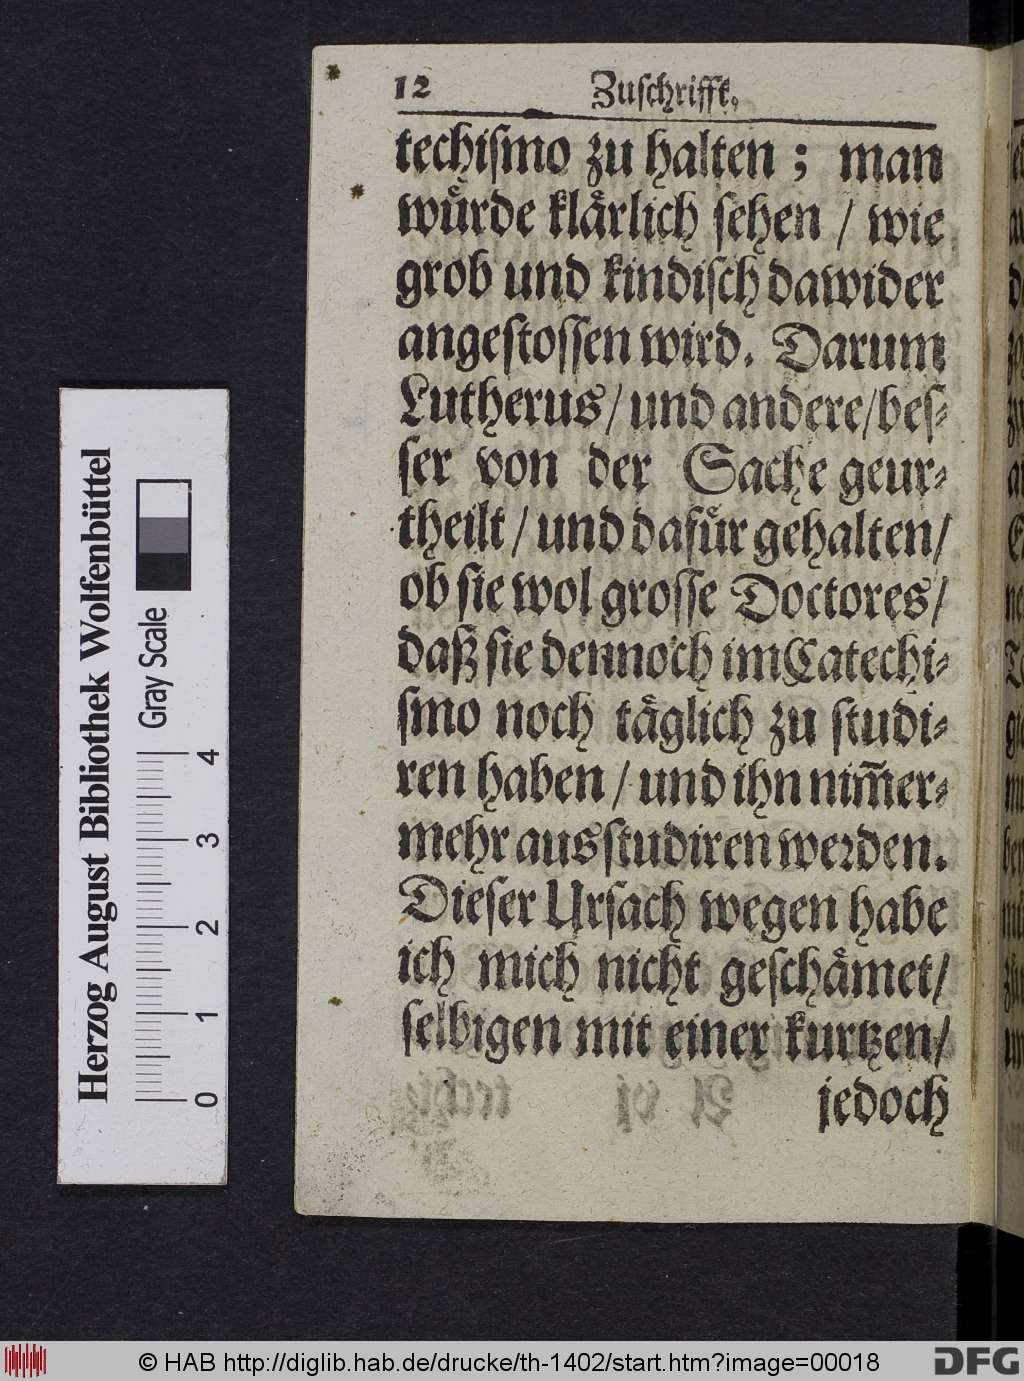 12 Zuschrifft.
techismo zu halten ; man
wuͤrde klaͤrlich sehen / wie
grob und kindisch dawider
angestossen wird. Darum
Lutherus / und andere / bes-
ser von der Sache geur-
theilt / und dafuͤr gehalten /
ob sie wol grosse Doctores /
daß sie dennoch im Catechi-
smo noch taͤglich zu studi-
ren haben / und ihn nim̃er-
mehr ausstudiren werden.
Dieser Ursach wegen habe
ich mich nicht geschaͤmet /
selbigen mit einer kurtzen /
jedoch
Herzog August Bibliothek Wolfenbüttel
Gray Scale
0 1 2 3 4
© HAB http://diglib.hab.de/drucke/th-1402/start.htm?image=00018
DFG